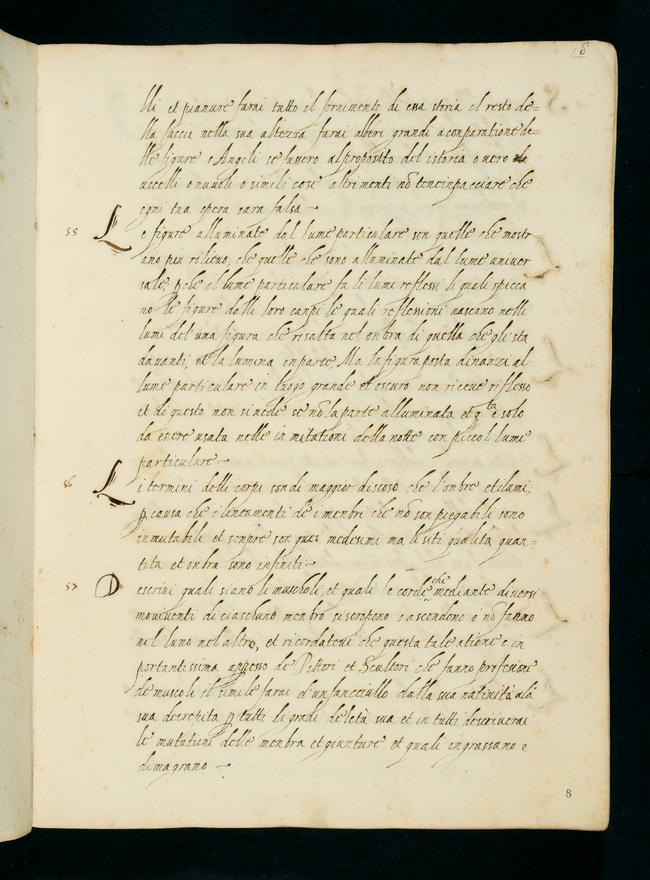 8
lli et pianure farai tutto il fornimento di essa storia el resto de=
lla faccia nella sua altezza farai alberi grandi a conparatione de=
lle figure o Angeli se fussero al proposito del istoria o vero
uccelli o nuvoli o simili cose altrimenti nō te ne inpacciare che
ogni tua opera sara falsa
55 Le figure alluminate dal lume particulare son quelle che mostr
ano piu rilievo, che quelle che sono alluminate dal lume univer
sale ꝑche el lume particulare fa li lumi reflessi li quali spicca
no le figure dalli loro canpi le quali reflessioni nascano nelli
lumi del una figura che risalta nel onbra di quella che gli sta
davanti, et la lumina in parte, Ma la figura posta dinanzi al
lume particulare in luogo grande et oscuro non riceve riflesso
et di questo non si vede se nō la parte alluminata et q.ta e solo
da essere usata nelle inmitationi della notte con piccol lume
particulare
56 Li termini delli corpi son di maggior discorso che l'ombre et i lumi,
ꝑ causa che i lineamenti de i menbri che nō son piegabili sono
inmutabili et senpre son ques medesimi ma li siti qualita quan=
tita et onbra sono infiniti
57 Descrivi quali siano le muscholi, et quali le corde che mediante diversi
movimenti di ciaschuno menbro si scropono o ascendono o nō fanno
ne l'uno ne l'altro, et ricordatevi che questa tale atione e in
portantissima appesso de Pittori et Scultori che fanno profesione
de muscoli el simile farai d'un fanceiullo dalla sua nativita alā
sua decrepita ꝑ tutti li gradi de leta sua et in tutti descriverai
le mutationi delle menbra et giunture et quali ingrassano e
dimagrano
8